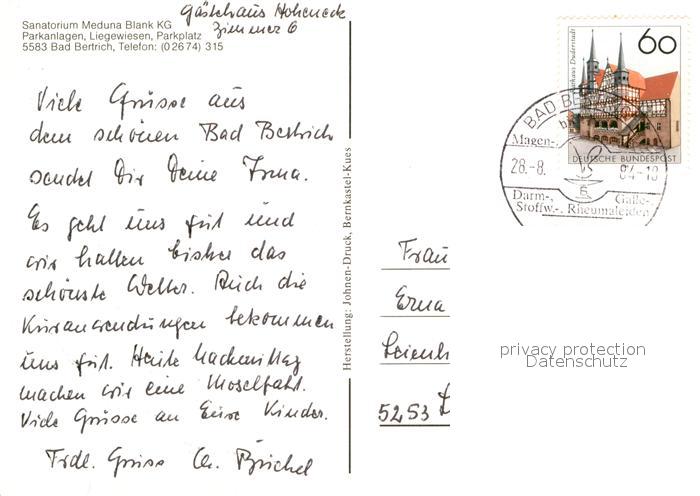 Gästehaus Hoheneck
Zimmer 6
Sanatorium Meduna Blank KG
Parkanlagen, Liegewiesen, Parkplatz
5583 Bad Bertrich, Telefon: (02674) 315
Viele Grüsse aus
dem schönen Bad Bertrich
sendet Dir Deine Irma.
Es geht uns gut und
wir hatten bisher das
schönste Wetter. Auch die
Kuranwendungen bekommen
uns gut. Heute Nachmittag
machen wir eine Moselfahrt.
Viele Grüsse an Eure Kinder.
Frdl. Gruss
Herstellung: Johnen-Druck, Bernkastel-Kues
60
Rathaus Duderstadt
DEUTSCHE BUNDESPOST
BAD BERTRICH
Magen-,
28.-8. 84-18
Darm-, Galle-,
Stoffw.-, Rheumaleiden
Frau
Erna
5253
privacy protection
Datenschutz